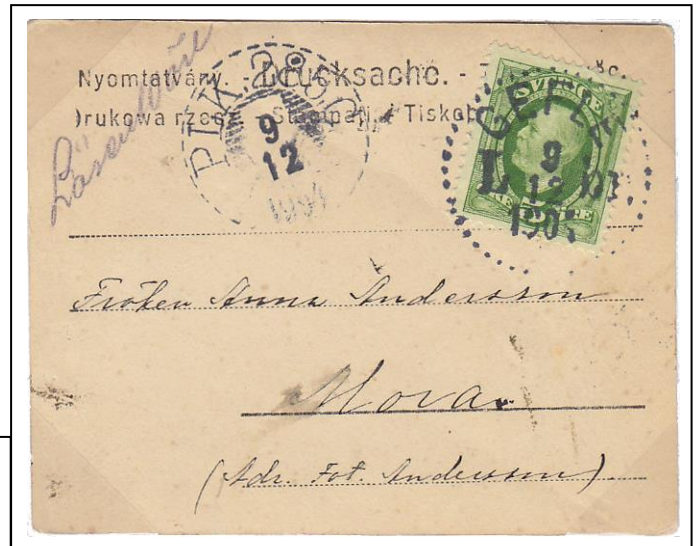 Nyomtatvány. - Drucksache. -
)rukowa rzecz Stampati. / Tiskop
PLK. 286
9
12
SVERGE
GEFLE
L 9
12
190
Fröken Anna Andersson
Mora.
(Adr. Fot. Andersson).